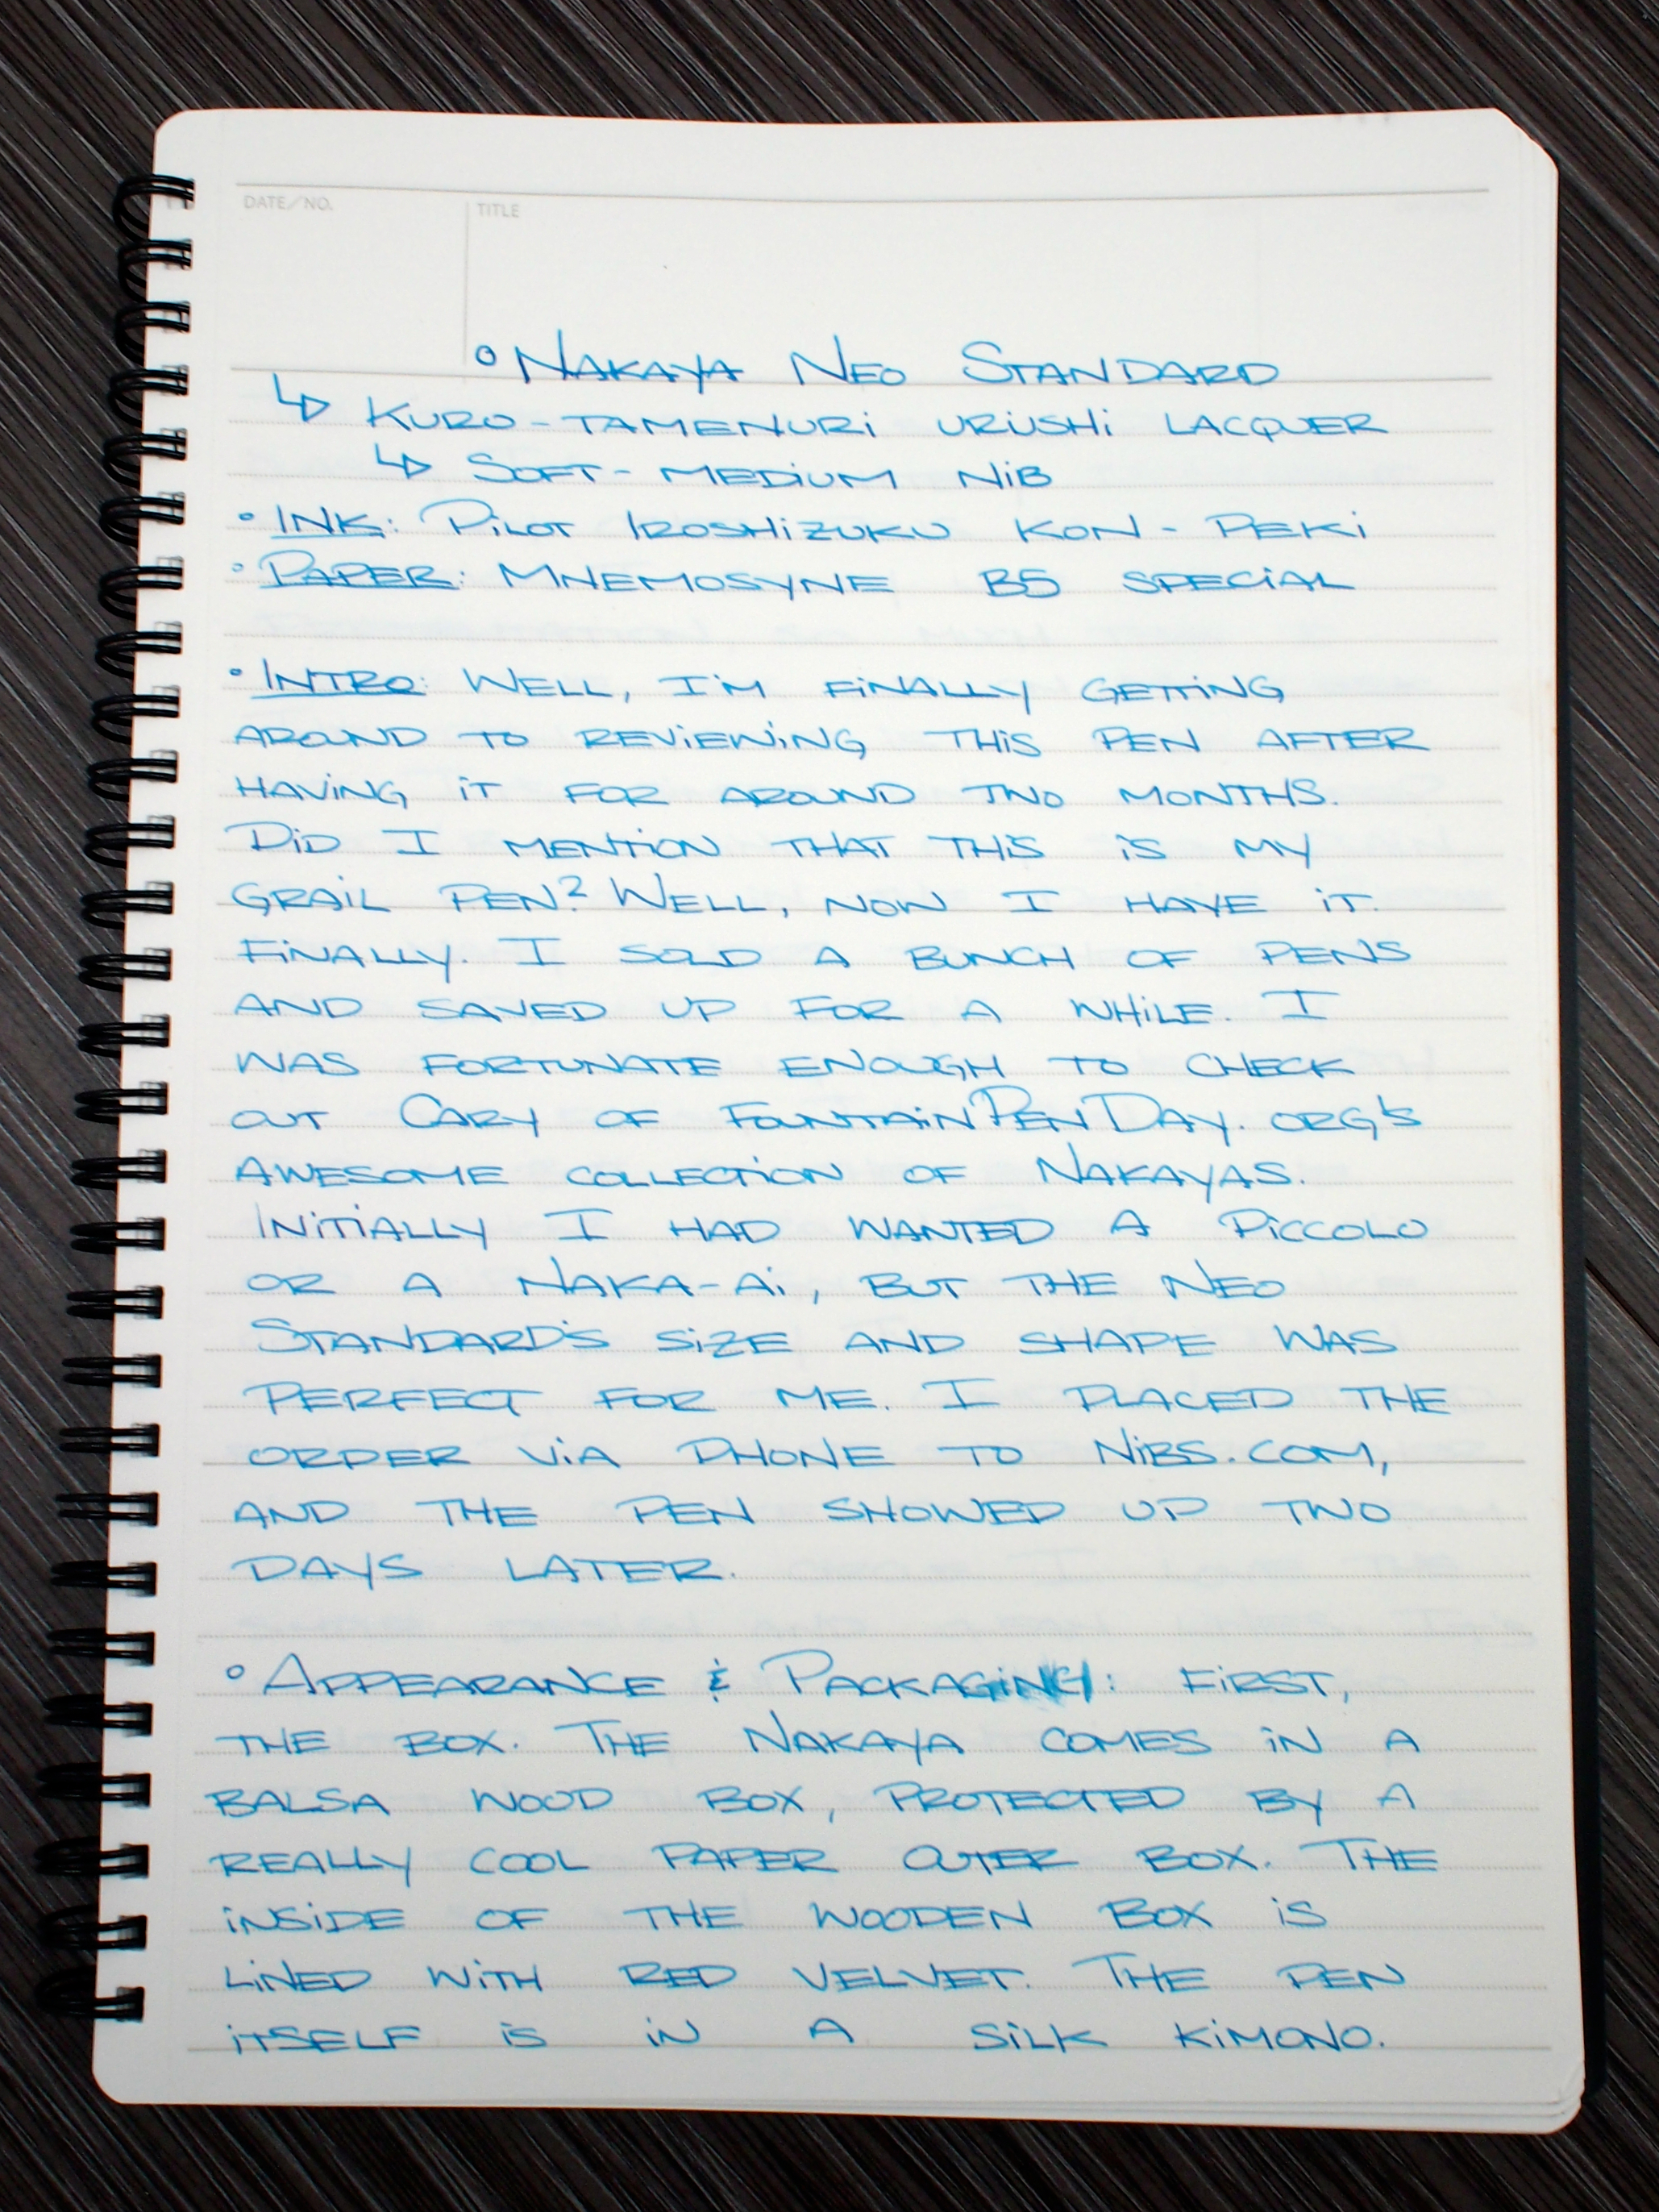 DATE/NO.
TITLE
° NAKAYA NEO STANDARD
↳ KURO-TAMENURI URUSHI LACQUER
↳ SOFT-MEDIUM NIB
° INK: PILOT IROSHIZUKU KON-PEKI
° PAPER: MNEMOSYNE B5 SPECIAL
° INTRO: WELL, I'M FINALLY GETTING
AROUND TO REVIEWING THIS PEN AFTER
HAVING IT FOR AROUND TWO MONTHS.
DID I MENTION THAT THIS IS MY
GRAIL PEN? WELL, NOW I HAVE IT.
FINALLY. I SOLD A BUNCH OF PENS
AND SAVED UP FOR A WHILE. I
WAS FORTUNATE ENOUGH TO CHECK
OUT CARY OF FOUNTAINPENDAY.ORG'S
AWESOME COLLECTION OF NAKAYAS.
INITIALLY I HAD WANTED A PICCOLO
OR A NAKA-AI, BUT THE NEO
STANDARD'S SIZE AND SHAPE WAS
PERFECT FOR ME. I PLACED THE
ORDER VIA PHONE TO NIBS.COM,
AND THE PEN SHOWED UP TWO
DAYS LATER.
° APPEARANCE & PACKAGING: FIRST,
THE BOX. THE NAKAYA COMES IN A
BALSA WOOD BOX, PROTECTED BY A
REALLY COOL PAPER OUTER BOX. THE
INSIDE OF THE WOODEN BOX IS
LINED WITH RED VELVET. THE PEN
ITSELF IS IN A SILK KIMONO.